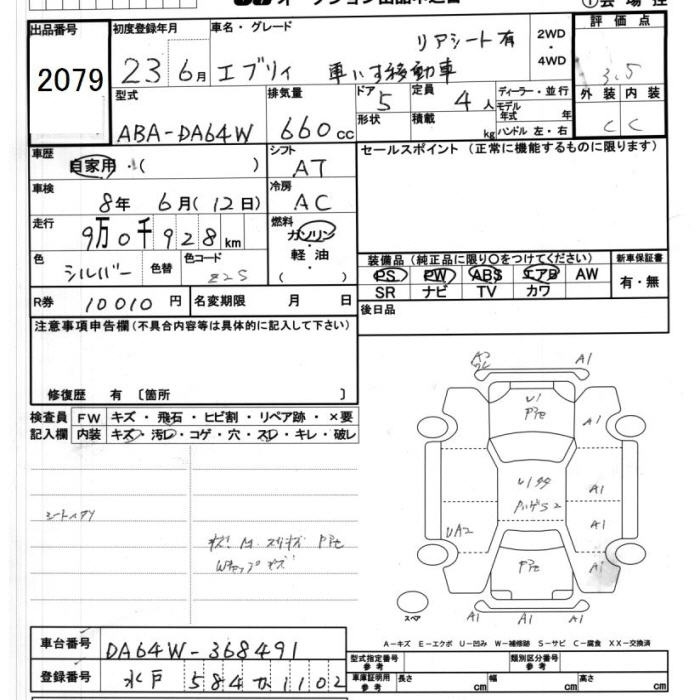 オークション出品申込書
①会場控
出品番号 2079
初度登録年月 23年 6月
車名・グレード エブリィ 車いす移動車 リアシート有
2WD・4WD
評価点 3.5
型式 ABA-DA64W
排気量 660cc
ドア 5
形状
定員 4人
積載 kg
ディーラー・並行
モデル年式 年
ハンドル 左・右
外装 C
内装 C
車歴 自家用・( )
シフト AT
セールスポイント(正常に機能するものに限ります)
車検 8年 6月(12日)
冷房 AC
走行 9万0千928km
燃料 ガソリン・軽油・( )
色 シルバー
色替
色コード Z2S
装備品(純正品に限り○をつけてください)
PS PW ABS エアB AW
SR ナビ TV カワ
新車保証書 有・無
R券 10010円
名変期限 月 日
後日品
注意事項申告欄(不具合内容等は具体的に記入して下さい)
修復歴 有〔箇所 〕
検査員記入欄
FW キズ・飛石・ヒビ割・リペア跡・×要
内装 キズ・汚レ・コゲ・穴・スレ・キレ・破レ
A1
A1
A1
A1
A1
A1
UA2
A1
A1
A1
スペア
A－キズ E－エクボ U－凹み W－補修跡 S－サビ C－腐食 XX－交換済
車台番号 DA64W-368491
登録番号 水戸 584 カ 1102
型式指定番号 参考
類別区分番号 参考
車庫証明用 参考 長さ cm 幅 cm 高さ cm